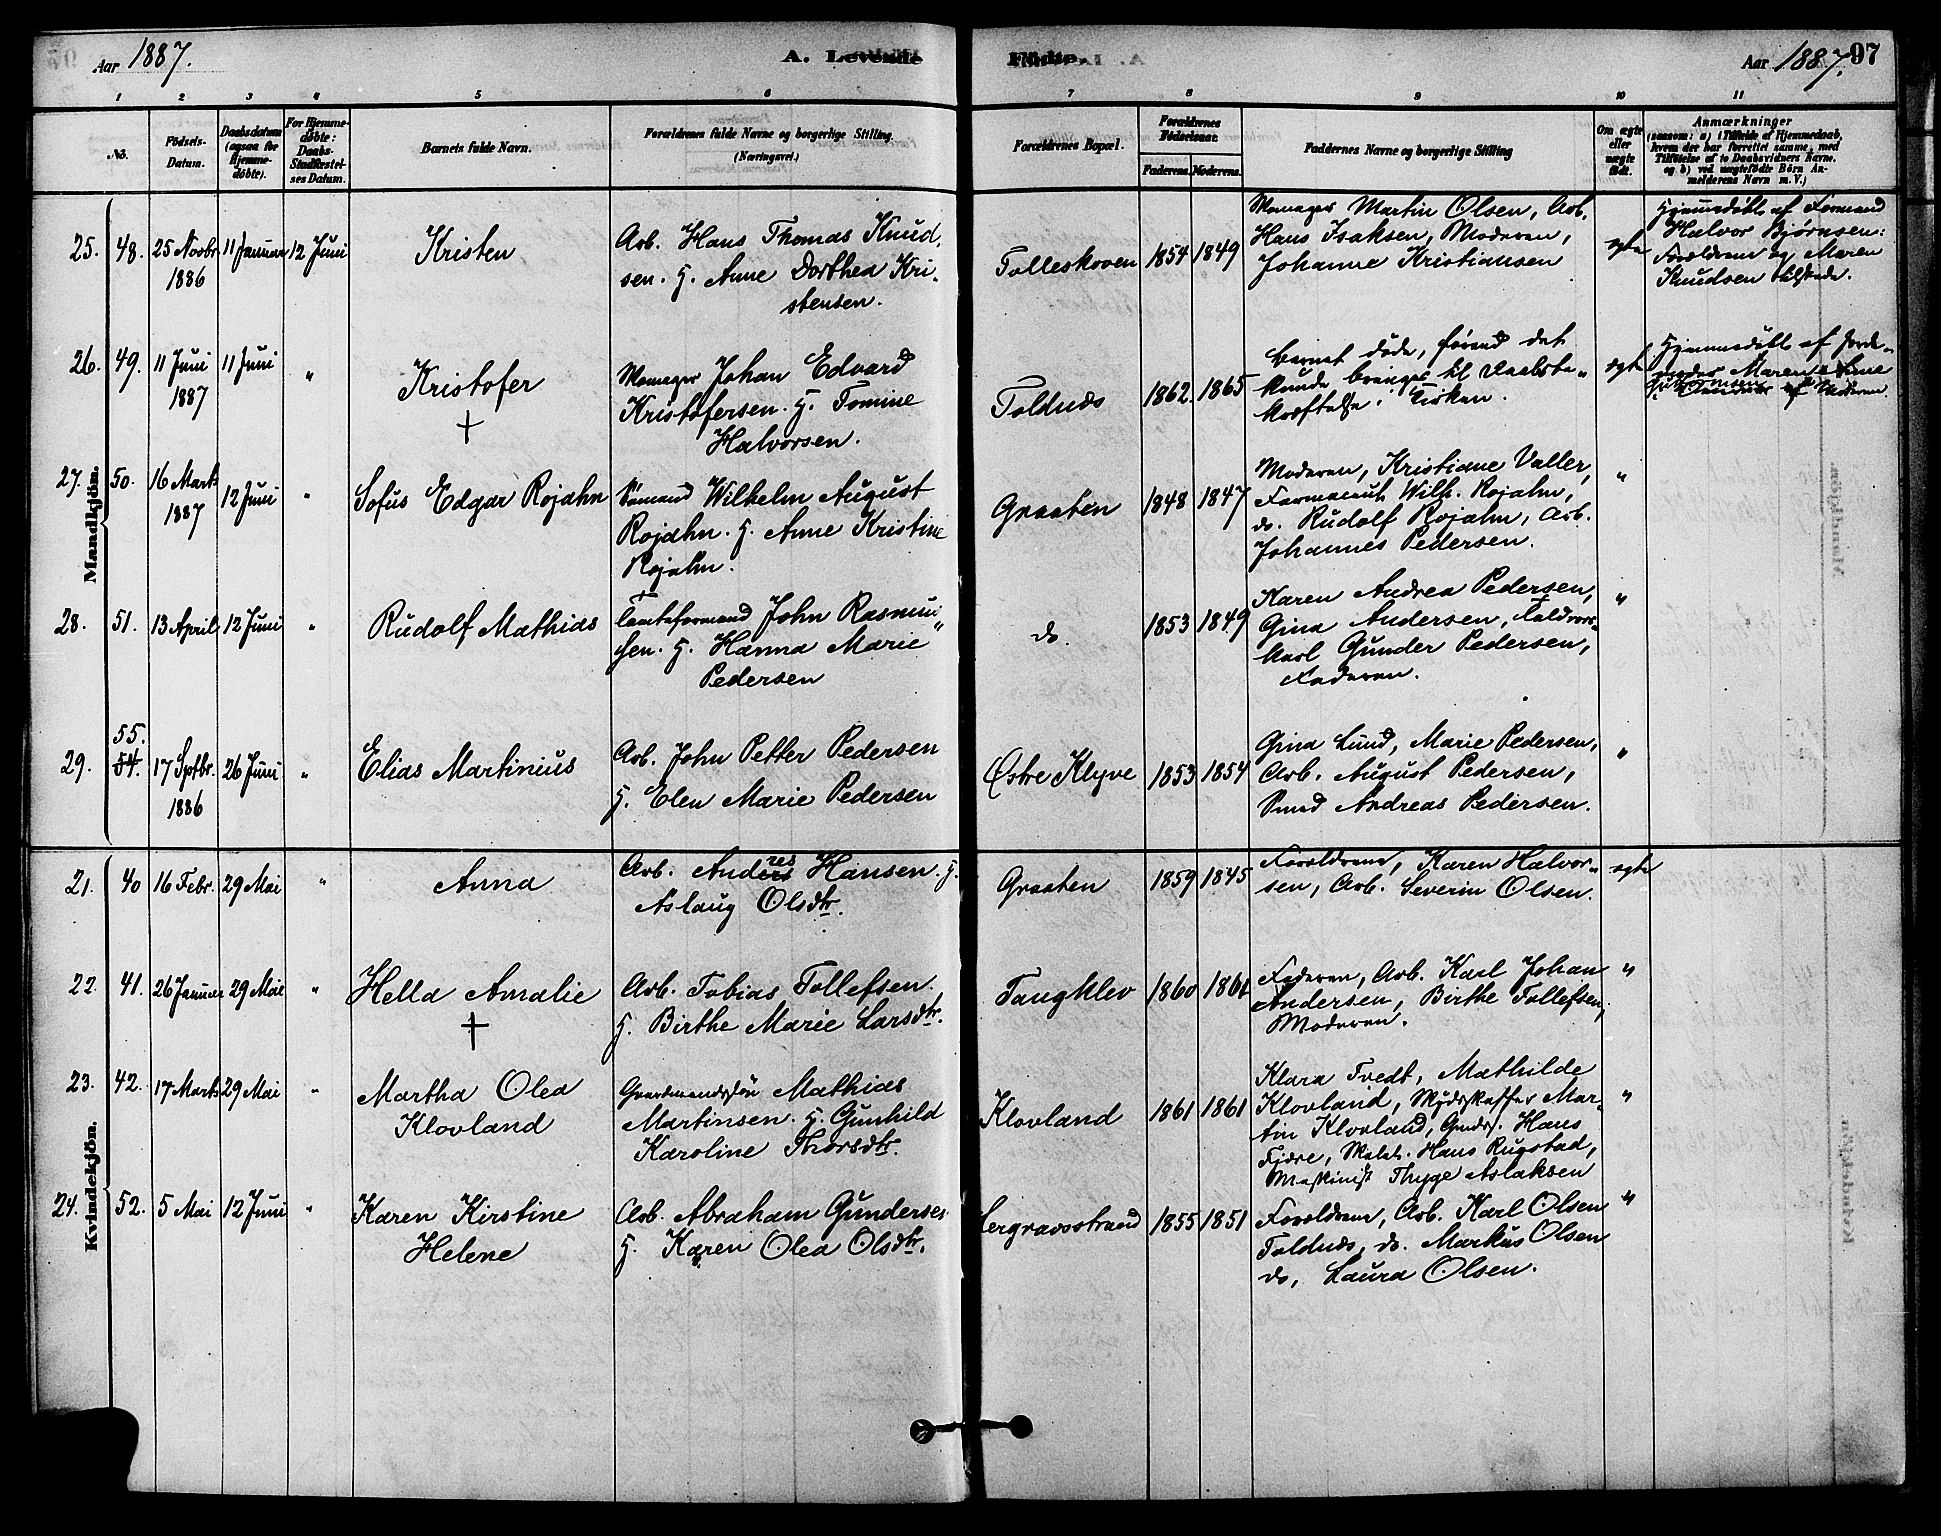 Aar 1887.
A. Levende
Fødte.
Aar 1887. 97
1 2 3 4 5 6 7 8 9 10 11
No.
Födsels-
Datum.
Daabsdatum
(ogsaa for
Hjemme-
döbte).
For Hjemme-
döbte:
Daabs-
Stadfæstel-
ses Datum.
Barnets fulde Navn.
Forældrenes fulde Navne og borgerlige Stilling.
(Næringsvei.)
Forældrenes Bopæl.
Forældrenes
Födselsaar.
Faderens. Moderens.
Faddernes Navne og borgerlige Stilling
Om ægte
eller
uægte
födt.
Anmærkninger
(saasom: a) i Tilfælde af Hjemmedaab,
hvem der har forrettet samme, med
Tilföielse af to Daabsvidners Navne.
og b) ved uægtefödte Börn An-
melderens Navn m. V.)
Mandkjön.
25. 48. 25 Novbr. 1886 11 Januar 12 Juni
Kristen
Arb. Hans Thomas Knud,
sen. H. Anne Dorthea Kri-
stensen.
Tolleskoven 1854 1849
Martin Olsen, Arb.
Hans Isaksen, Moderen,
Johanne Kristiansen
egte
Hjemmedøbt af Formand
Halvor Bjørnsen:
Forældrene og Maren
Knudsen tilstede.
26. 49. 11 Juni 1887 11 Juni "
Kristofer
+
Johan Edvard
Kristofersen. H. Tomine
Halvorsen.
Toldnes 1862. 1865
Barnet døde, førend det
kunde bringes til Daabsbe"
kræftelse i Kirken.
egte
Hjemmedøbt af Jorde-
moder Maren
Moderen.
27. 50. 16 Marts 1887 12 Juni "
Sofus Edgar Rojahn
Sømand Wilhelm August
Rojahn. H. Anne Kristine
Rojahn.
Graaten 1848 1847
Moderen, Kristiane Valler,
Farmaceut Wilh. Rojahn,
do. Rudolf Rojahn, Arb.
Johannes Pedersen.
"
28. 51. 13 April 12 Juni "
Rudolf Mathias
John Rasmus"
sen. H. Hanna Marie
Pedersen
do. 1853 1849
Karen Andrea Pedersen,
Gina Andersen,
Karl Gunder Pedersen,
Faderen.
"
29. 55. 54. 17 Sptbr. 1886 26 Juni "
Elias Martinius
Arb. John Petter Pedersen
H. Elen Marie Pedersen
Østre Klyve 1853 1854
Gina Lund, Marie Pedersen,
Arb. August Pedersen,
Smed Andreas Pedersen.
"
Kvindekjön.
21. 40 16 Febr. 29 Mai "
Anna
Arb. Andres Hansen. H.
Aslaug Olsdtr.
Graaten 1859 1845
Forældrene, Karen Halvor"
sen, Arb. Severin Olsen.
egte
22. 41. 26 Januar 29 Mai "
Hella Amalie
+
Arb. Tobias Tollefsen.
H. Birthe Marie Larsdtr.
Tangklev 1860 1861
Faderen, Arb. Karl Johan
Andersen, Birthe Tollefsen,
Moderen.
"
23. 42. 17 Marts 29 Mai "
Martha Olea
Klovland
Gaardmandssøn Mathias
Martinsen. H. Gunhild
Karoline Thorsdtr.
Klovland 1861 1861
Klara Tvedt, Mathilde
Klovland, Mar-
tin Klovland, Hans
Fjære, Hans Rugstad,
Maskinist Thygge Aslaksen
"
24. 52. 5 Mai 12 Juni "
Karen Kirstine
Helene
Arb. Abraham Gundersen
H. Karen Olea Olsdtr.
Lergravsstrand 1855 1851
Forældrene, Arb. Karl Olsen
Toldnes, do. Markus Olsen
do, Laura Olsen.
"